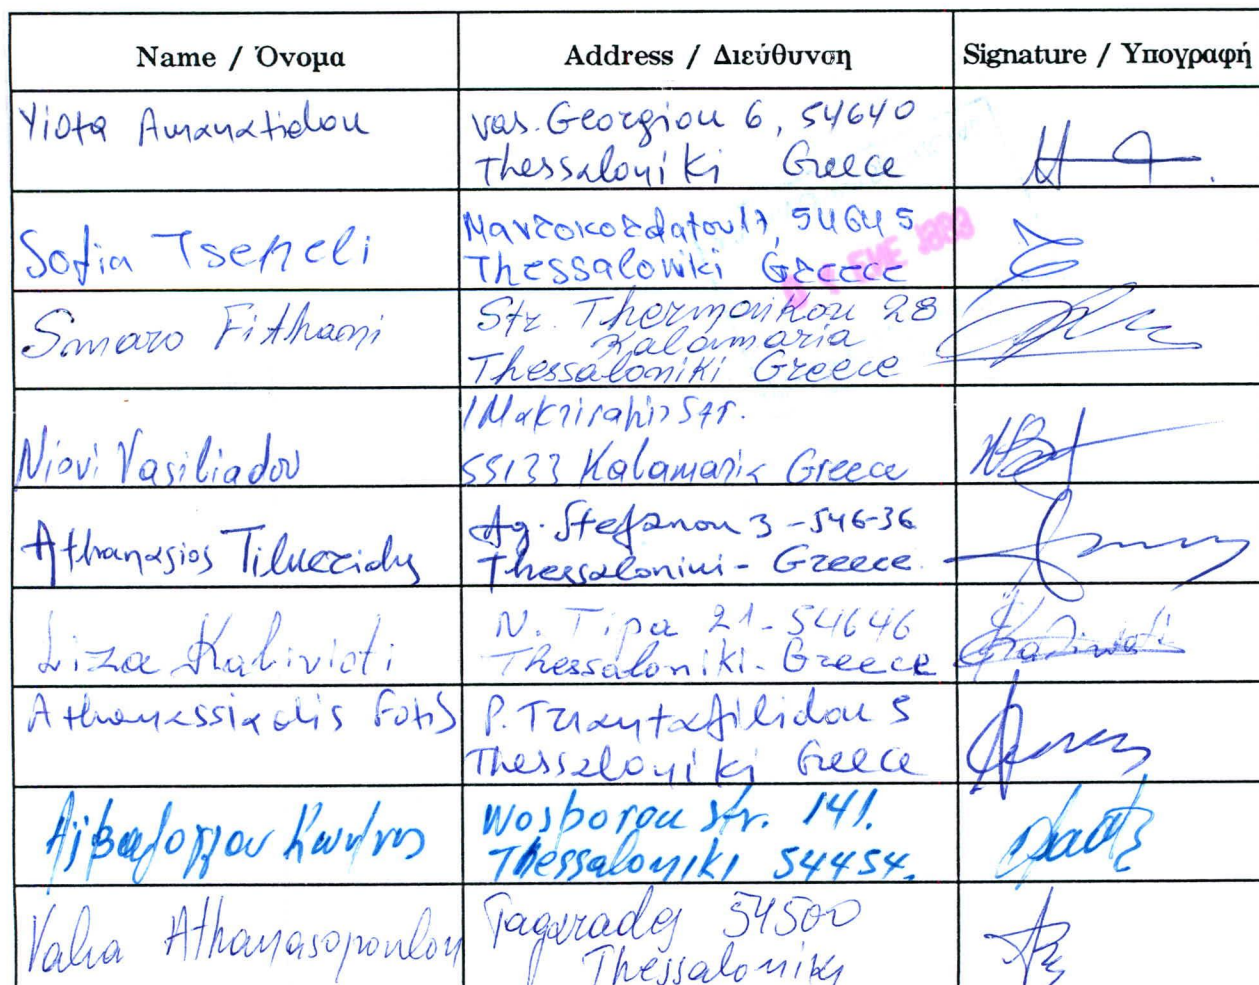 Name / Όνομα
Address / Διεύθυνση
Signature / Υπογραφή
Yiota Amanatidou
vas. Georgiou 6, 54640
Thessaloniki Greece
Sofia Tsepeli
54645
Thessaloniki Greece
Smaro Fithani
Str. Thermaikou 28
Kalamaria
Thessaloniki Greece
Niovi Vasiliadou
Str.
55133 Kalamaria Greece
Athanasios
Ag. Stefanou 3 - 546-36
Thessaloniki - Greece
Liza Kalivioti
N. Tipa 21 - 54646
Thessaloniki - Greece
Athanassiadis Fotis
P. Triantafilidou 5
Thessaloniki Greece
Wosporou str. 141.
Thessaloniki 54454.
Valia Athanasopoulou
Tagarades 54500
Thessaloniki